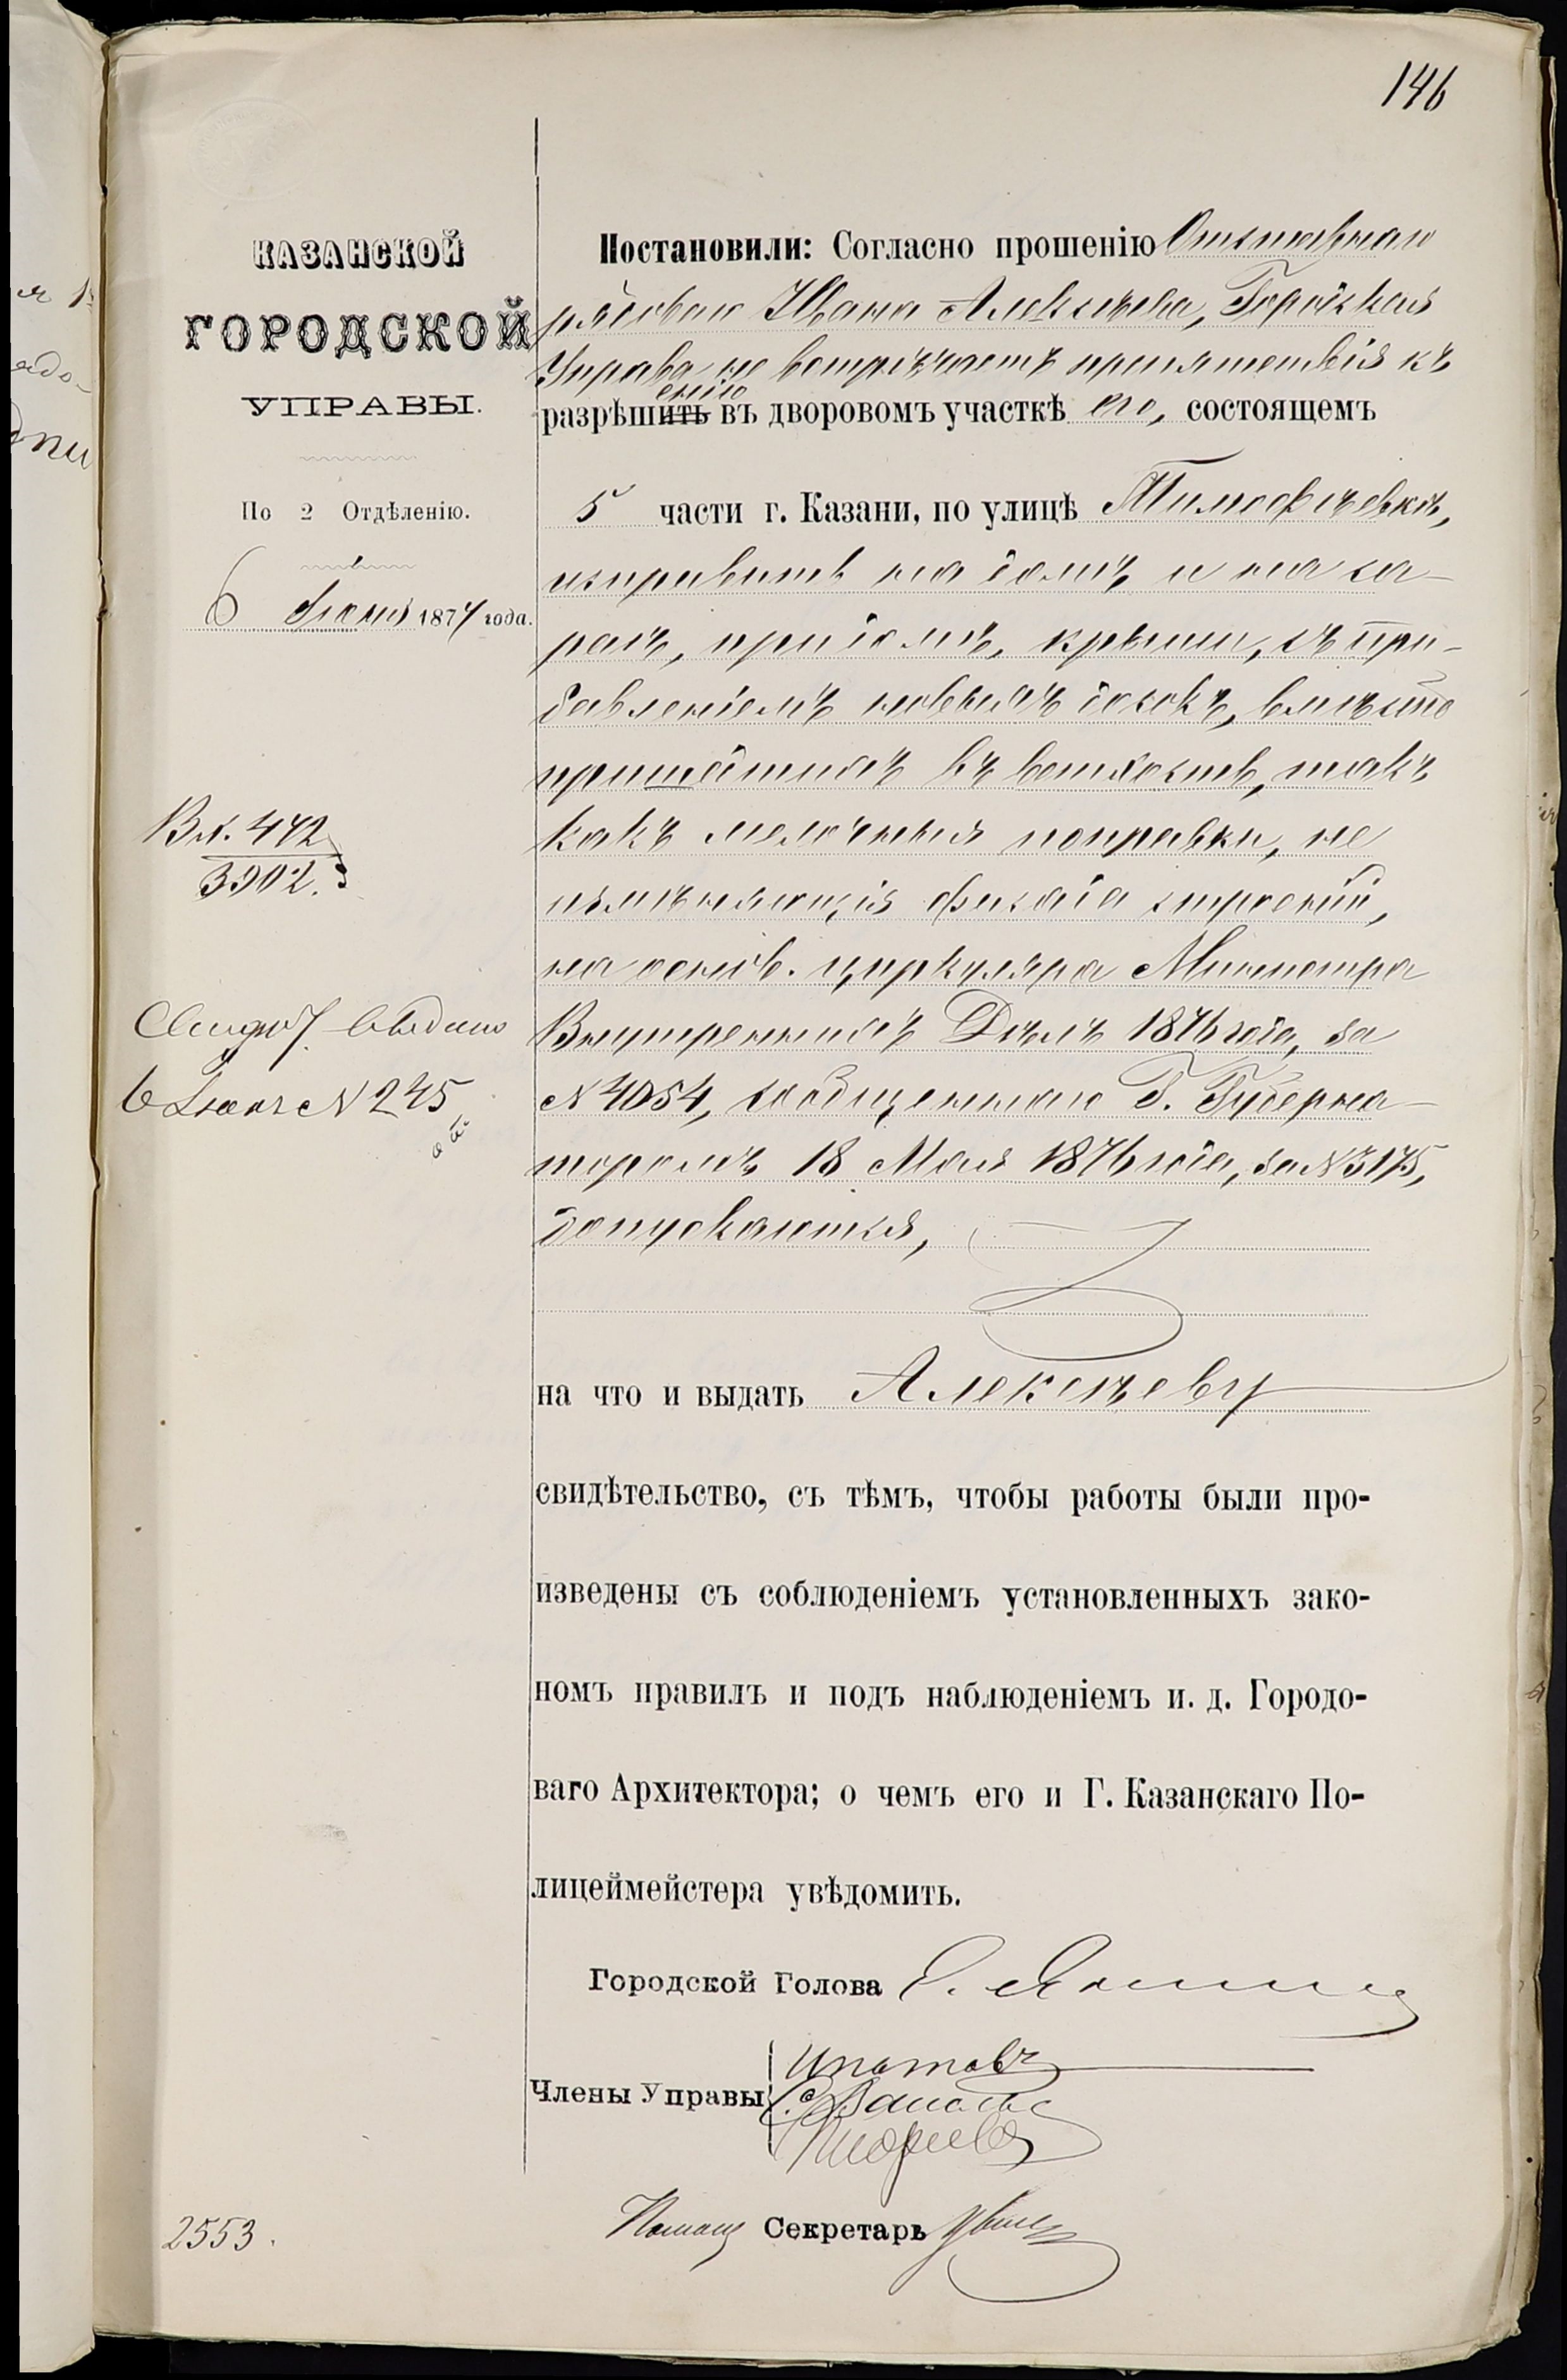 146
КАЗАНСКОЙ
ГОРОДСКОЙ
УПРАВЫ.
По 2 Отдѣленію.
6 Іюня 1877 года.
Вх. 442
3902.
6 Іюня N 245
2553.
Постановили: Согласно прошенію Отставнаго
рядоваго Ивана Алексѣева, Городская
Управа не встрѣчаетъ препятствія къ
разрѣшить енію въ дворовомъ участкѣ его, состоящемъ
5 части г. Казани, по улицѣ Тимофѣевкѣ,
исправить на домѣ и на са-
раѣ, при домѣ, крыши, съ при-
бавленіемъ новыхъ досокъ, вмѣсто
пришедшихъ въ ветхость, такъ
какъ мелочныя поправки, не
измѣняющія фасада строеній,
на основ. циркуляра Министра
Внутреннихъ Дѣлъ 1876 года, за
N 4054, сообщеннаго Г. Губерна-
торомъ 18 Мая 1876 года, за N 3175,
допускаются,
на что и выдать Алексѣеву
свидѣтельство, съ тѣмъ, чтобы работы были про-
изведены съ соблюденіемъ установленныхъ зако-
номъ правилъ и подъ наблюденіемъ и. д. Городо-
ваго Архитектора; о чемъ его и Г. Казанскаго По-
лицеймейстера увѣдомить.
Городской Голова
Члены Управы Ипатовъ
Помощ Секретарь